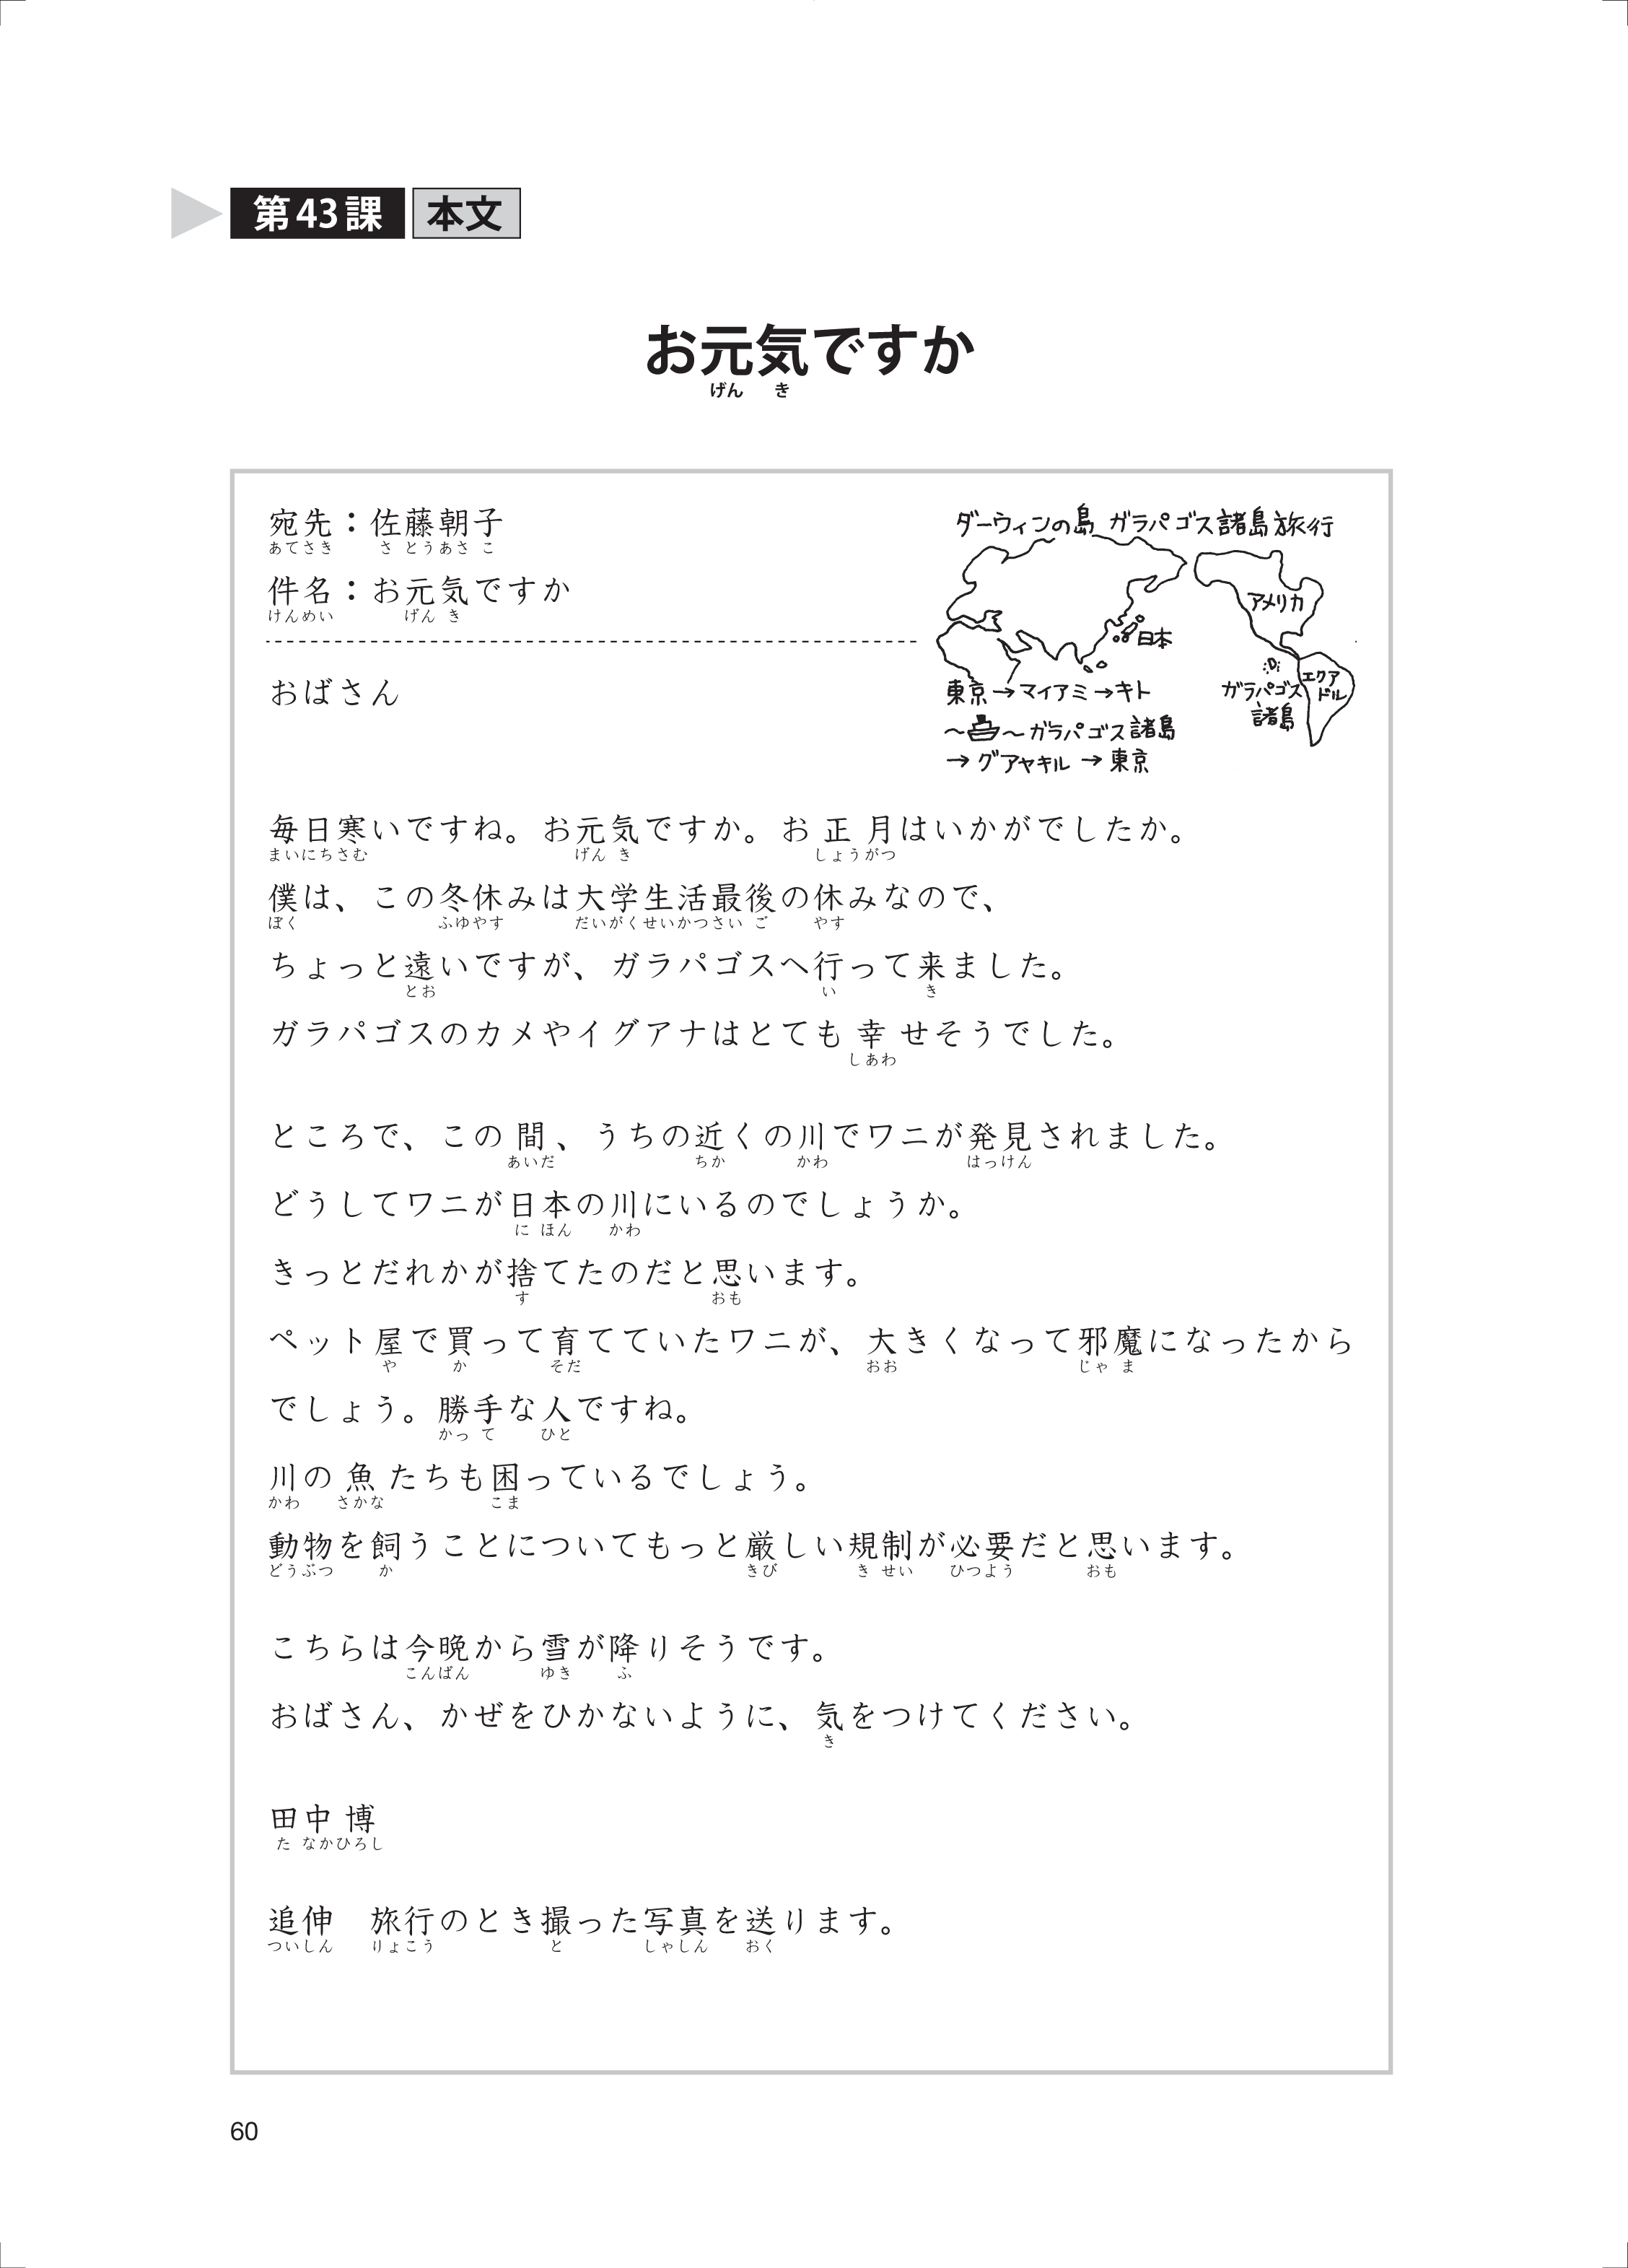 第43課 本文
お元気ですか
げん き
宛先：佐藤朝子
あてさき さとうあさこ
件名：お元気ですか
けんめい げん き
ダーウィンの島 ガラパゴス諸島旅行
アメリカ
日本
エクアドル
ガラパゴス諸島
東京→マイアミ→キト
～～ガラパゴス諸島
→グアヤキル→東京
おばさん
毎日寒いですね。お元気ですか。お正月はいかがでしたか。
まいにちさむ げん き しょうがつ
僕は、この冬休みは大学生活最後の休みなので、
ぼく ふゆやす だいがくせいかつさい ご やす
ちょっと遠いですが、ガラパゴスへ行って来ました。
とお い き
ガラパゴスのカメやイグアナはとても幸せそうでした。
しあわ
ところで、この間、うちの近くの川でワニが発見されました。
あいだ ちか かわ はっけん
どうしてワニが日本の川にいるのでしょうか。
に ほん かわ
きっとだれかが捨てたのだと思います。
す おも
ペット屋で買って育てていたワニが、大きくなって邪魔になったから
や か そだ おお じゃ ま
でしょう。勝手な人ですね。
かっ て ひと
川の魚たちも困っているでしょう。
かわ さかな こま
動物を飼うことについてもっと厳しい規制が必要だと思います。
どうぶつ か きび き せい ひつよう おも
こちらは今晩から雪が降りそうです。
こんばん ゆき ふ
おばさん、かぜをひかないように、気をつけてください。
き
田中博
た なかひろし
追伸　旅行のとき撮った写真を送ります。
ついしん りょこう と しゃしん おく
60